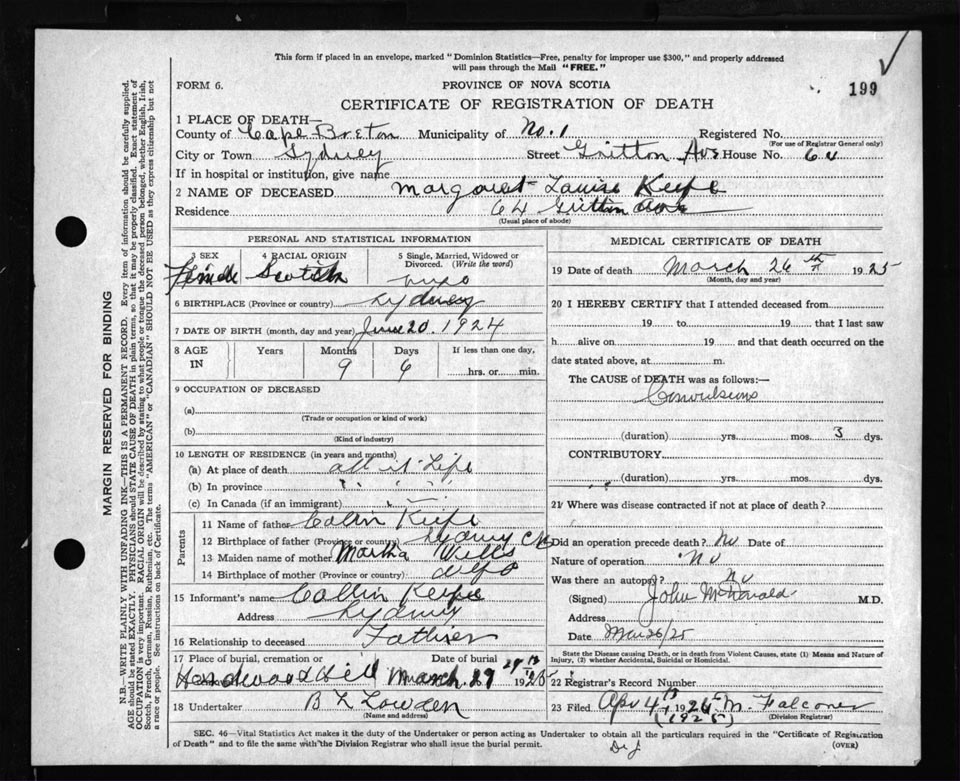 This form if placed in an envelope, marked "Dominion Statistics—Free, penalty for improper use $300," and properly addressed
will pass through the Mail "FREE."
FORM 6.
PROVINCE OF NOVA SCOTIA
199
CERTIFICATE OF REGISTRATION OF DEATH
1 PLACE OF DEATH—
County of Cape Breton Municipality of No. 1 Registered No.
(For use of Registrar General only)
City or Town Sydney Street Ave House No.
If in hospital or institution, give name
2 NAME OF DECEASED Margaret Louise Keefe
Residence 64
(Usual place of abode)
PERSONAL AND STATISTICAL INFORMATION
3 SEX Female
4 RACIAL ORIGIN Scotch
5 Single, Married, Widowed or Divorced. (Write the word)
6 BIRTHPLACE (Province or country) Sydney
7 DATE OF BIRTH (month, day and year) June 20. 1924
8 AGE IN Years Months 9 Days 6 If less than one day, hrs. or min.
9 OCCUPATION OF DECEASED
(a)
(Trade or occupation or kind of work)
(b)
(Kind of industry)
10 LENGTH OF RESIDENCE (in years and months)
(a) At place of death all its Life
(b) In province " " "
(c) In Canada (if an immigrant)
Parents
11 Name of father Collin Keefe
12 Birthplace of father (Province or country) Sydney
13 Maiden name of mother Martha Wells
14 Birthplace of mother (Province or country) Nfld
15 Informant's name Collin Keefe
Address Sydney
16 Relationship to deceased Father
17 Place of burial, cremation or Date of burial
Hardwood Hill March. 29 th 1925
18 Undertaker B L Lowden
(Name and address)
MEDICAL CERTIFICATE OF DEATH
19 Date of death March 26th 1925
(Month, day and year)
20 I HEREBY CERTIFY that I attended deceased from
19 to 19 that I last saw
h alive on 19 and that death occurred on the
date stated above, at m.
The CAUSE of DEATH was as follows:—
Convulsions
(duration) yrs. mos. 3 dys.
CONTRIBUTORY
(duration) yrs. mos. dys.
21 Where was disease contracted if not at place of death?
Did an operation precede death? No Date of
Nature of operation No
Was there an autopsy? No
(Signed) John McDonald M.D.
Address
Date Mar 26/25
State the Disease causing Death, or in death from Violent Causes, state (1) Means and Nature of
Injury, (2) whether Accidental, Suicidal or Homicidal.
22 Registrar's Record Number
23 Filed Apr 4th 1925 M. Falconer
(1925) (Division Registrar)
SEC. 46—Vital Statistics Act makes it the duty of the Undertaker or person acting as Undertaker to obtain all the particulars required in the "Certificate of Registration
of Death" and to file the same with the Division Registrar who shall issue the burial permit.
(OVER)
MARGIN RESERVED FOR BINDING
N.B.—WRITE PLAINLY WITH UNFADING INK—THIS IS A PERMANENT RECORD. Every item of information should be carefully supplied.
AGE should be stated EXACTLY. PHYSICIANS should STATE CAUSE OF DEATH in plain terms, so that it may be properly classified. Exact statement of
OCCUPATION is very important. RACIAL ORIGIN will be described by stating to what people or tongue the deceased person belonged, whether English, Irish,
Scotch, French, German, Russian, Ruthenian, etc. The terms "AMERICAN" or "CANADIAN" SHOULD NOT BE USED as they express citizenship but not
a race or people. See instructions on back of Certificate.